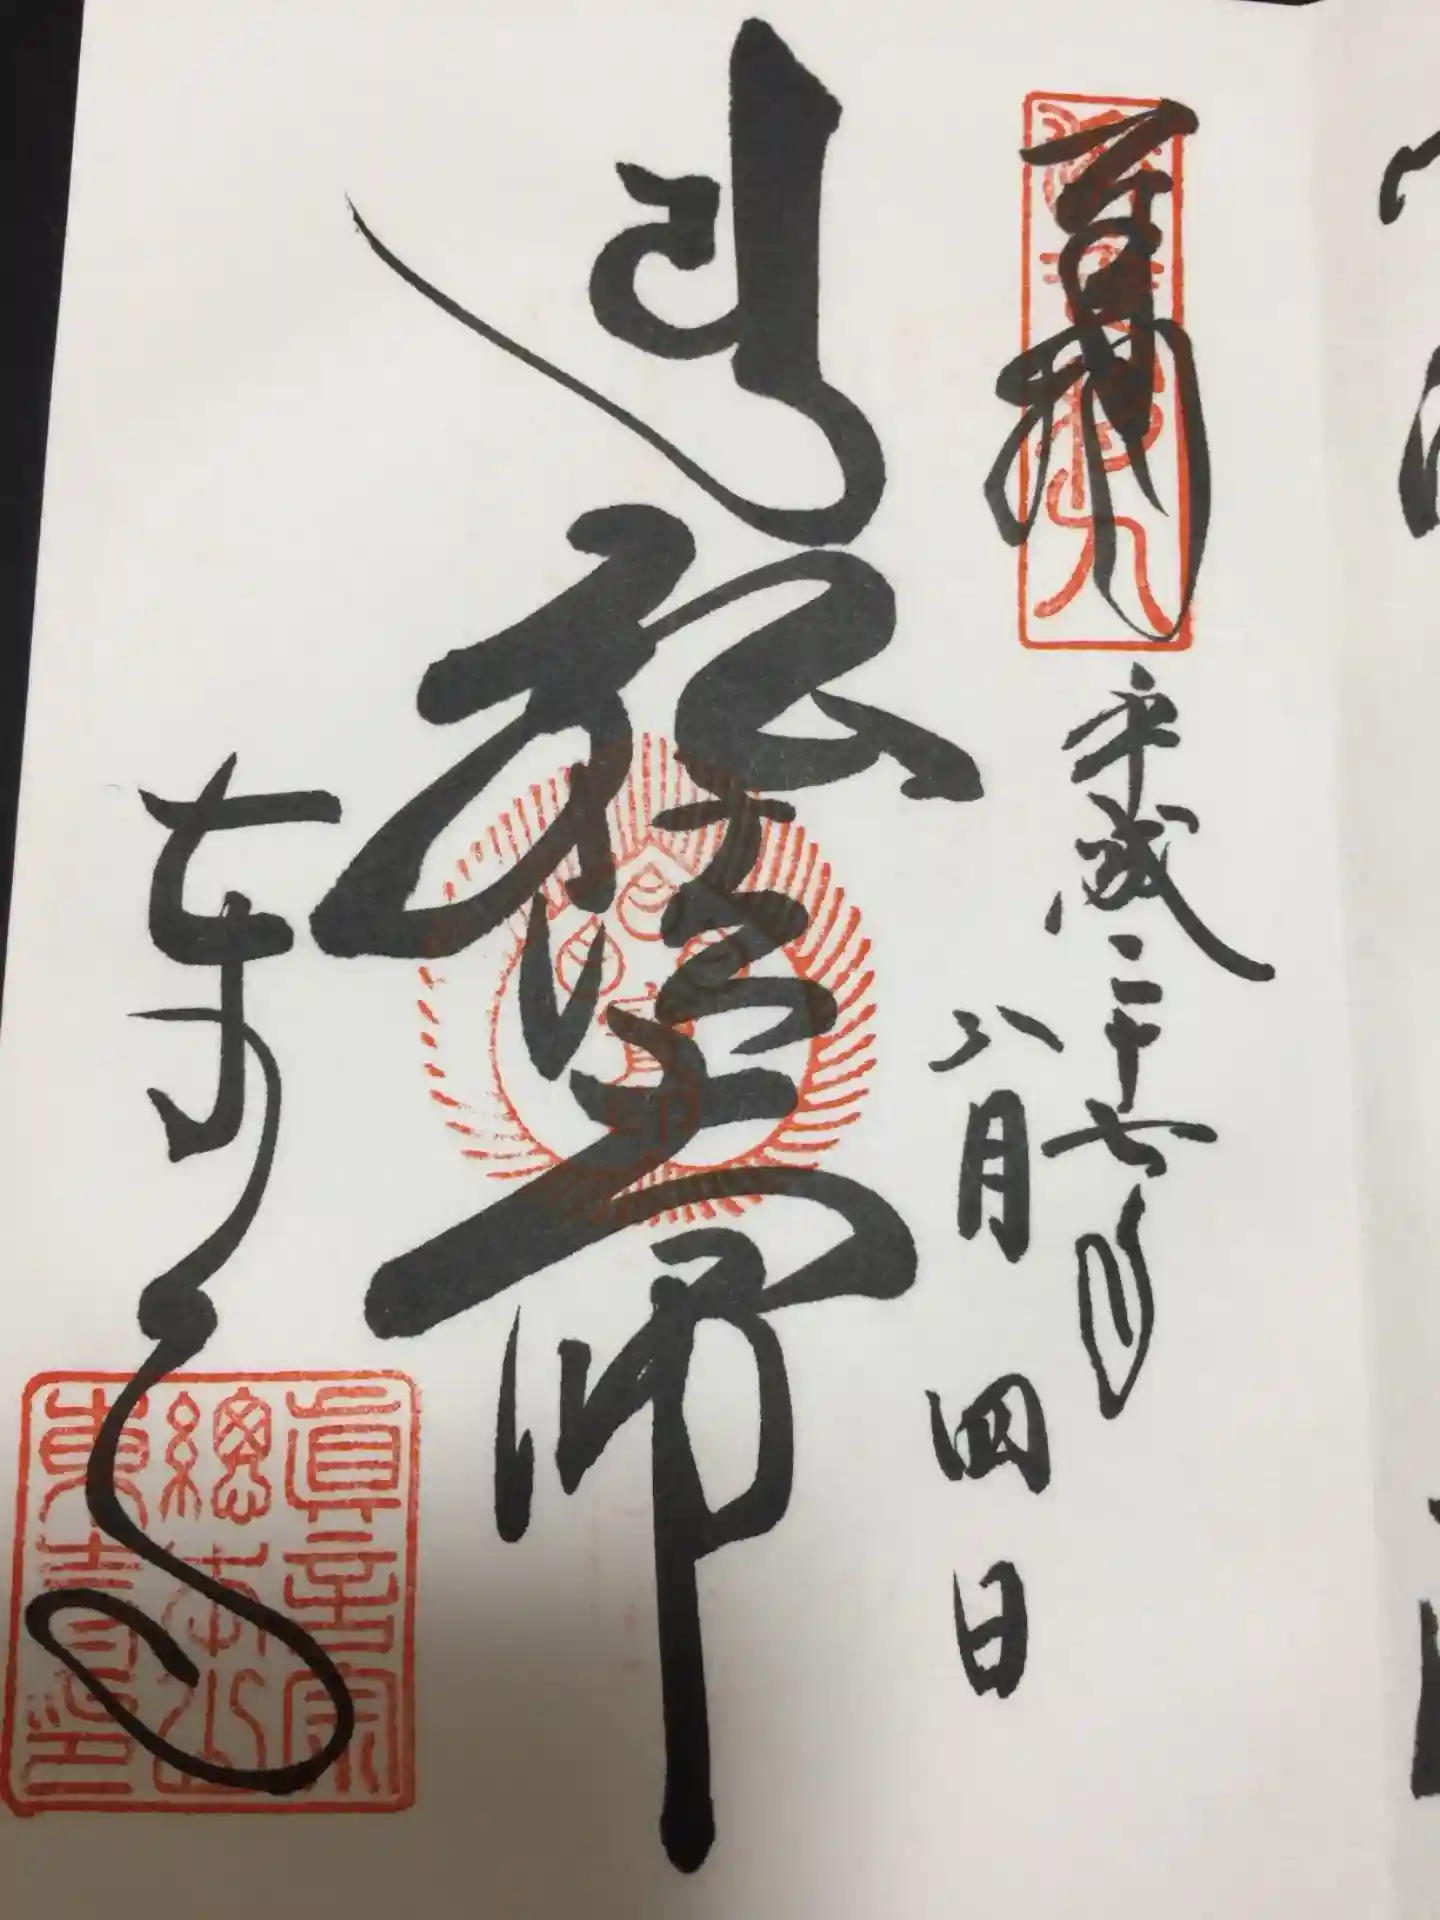 奉拝
平成二十七年
八月四日
弘法大師
東寺
眞言宗
總本山
東寺印